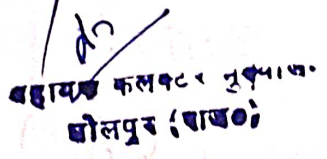 सहायक कलक्टर मुख्या०
धोलपुर (राज०)